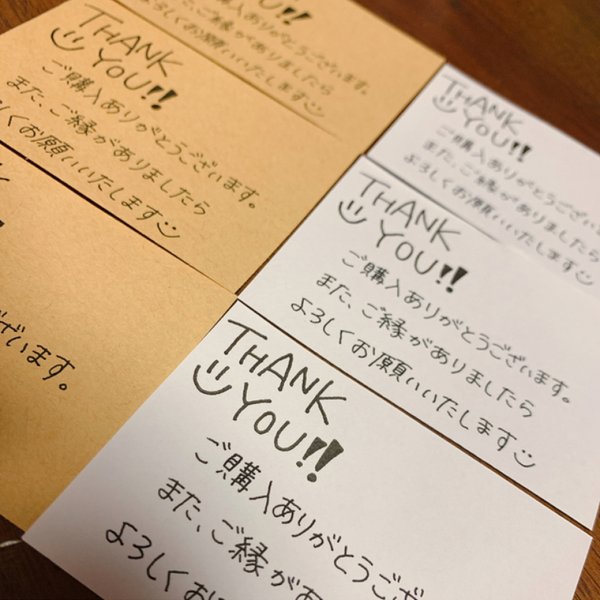 YOU!!
ご購入ありがとうございます。
また、ご縁がありましたら
よろしくお願いいたします
THANK
YOU!!
ご購入ありがとうございます。
また、ご縁がありましたら
しくお願いいたします
ざいます。
THANK
YOU!!
ご購入ありがとうございます
また、ご縁がありましたら
よろしくお願いいたします
THANK
YOU!!
ご購入ありがとうございます。
また、ご縁がありましたら
よろしくお願いいたします
THANK
YOU!!
ご購入ありがとうござ
また、ご縁があり
よろしくお